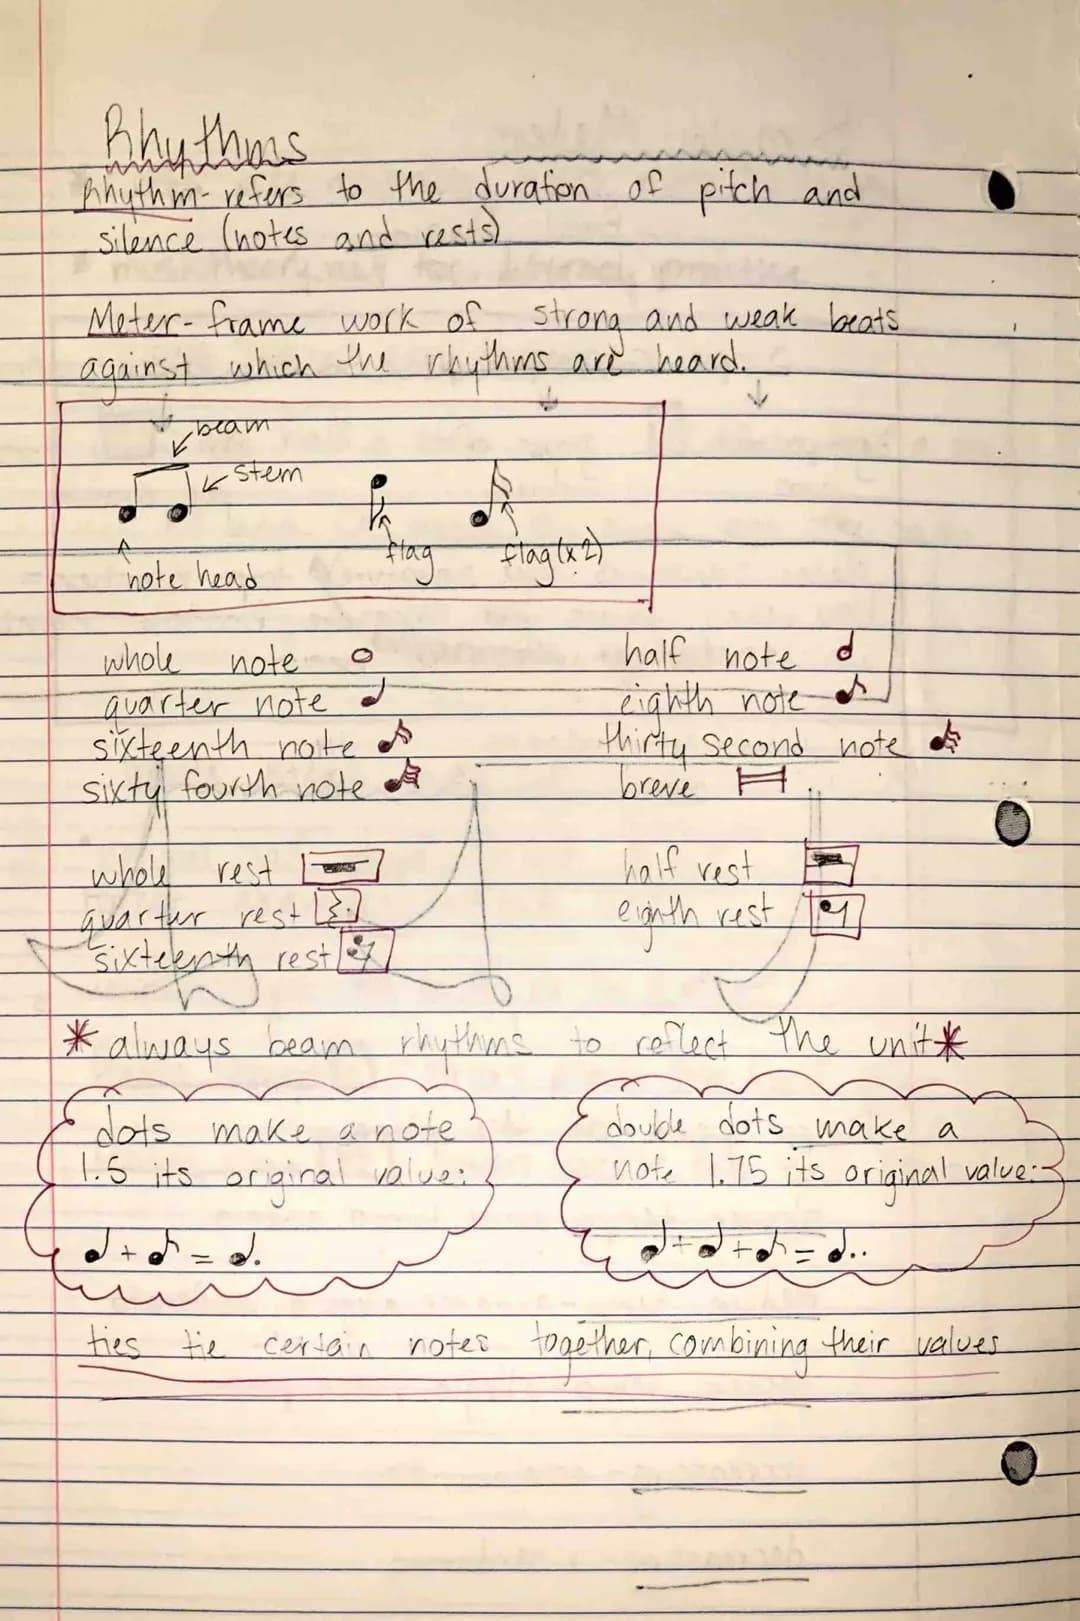 Rhythms
Rhythm- refers to the duration of pitch and
silence (notes and rests)
Meter- frame work of strong and weak beats
against which the rhythms are heard.
beam
stem
flag
flag (x2)
note head
whole note
half note
quarter note
eighth note
sixteenth note
thirty second note
sixty fourth note
breve
whole rest
half rest
quarter rest
eighth rest
sixteenth rest
* always beam rhythms to reflect the unit *
dots make a note
1.5 its original value:
double dots make a
note 1.75 its original value:
ties tie certain notes together, combining their values